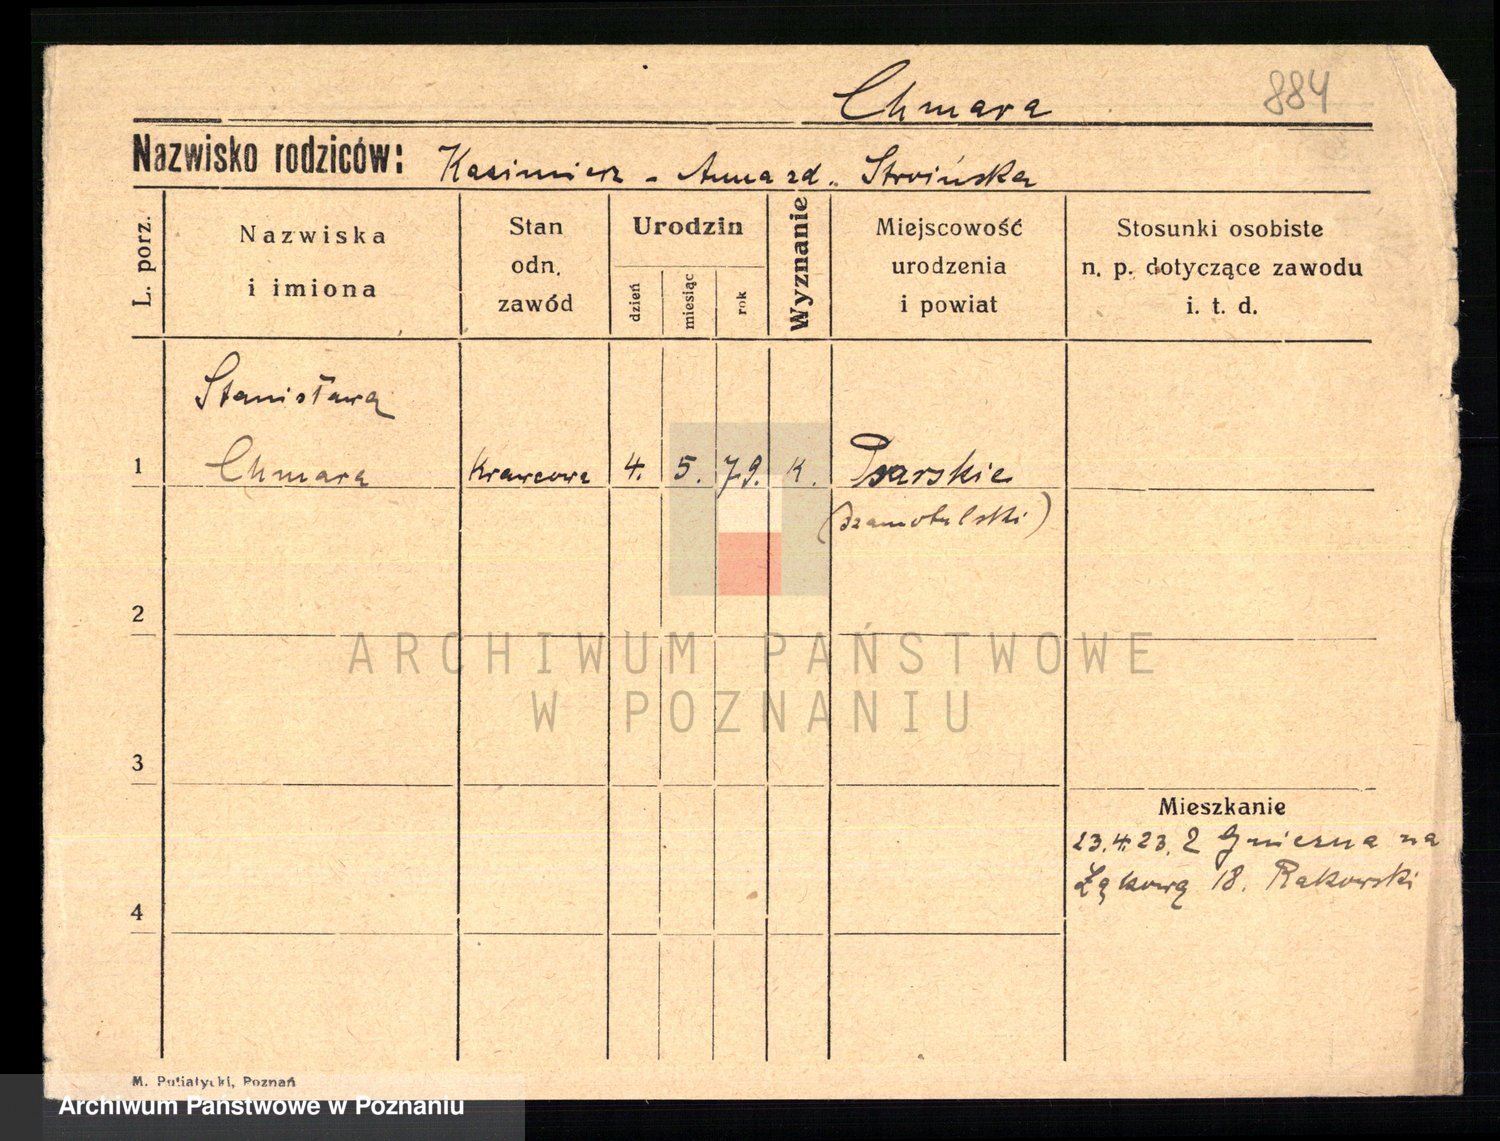 Chmara
884
Nazwisko rodziców: Kazimierz - Anna zd. Stroińska
L. porz.
Nazwiska
i imiona
Stan
odn.
zawód
Urodzin
dzień
miesiąc
rok
Wyznanie
Miejscowość
urodzenia
i powiat
Stosunki osobiste
n. p. dotyczące zawodu
i. t. d.
Stanisława
1 Chmara Krawcowa 4. 5. 79. K. Psarskie
(szamotulski)
2
ARCHIWUM PAŃSTWOWE
W POZNANIU
3
Mieszkanie
23.4.23. Z Gniezna na
Łąkową 18. Rakowski
4
M. Putiatycki, Poznań
Archiwum Państwowe w Poznaniu